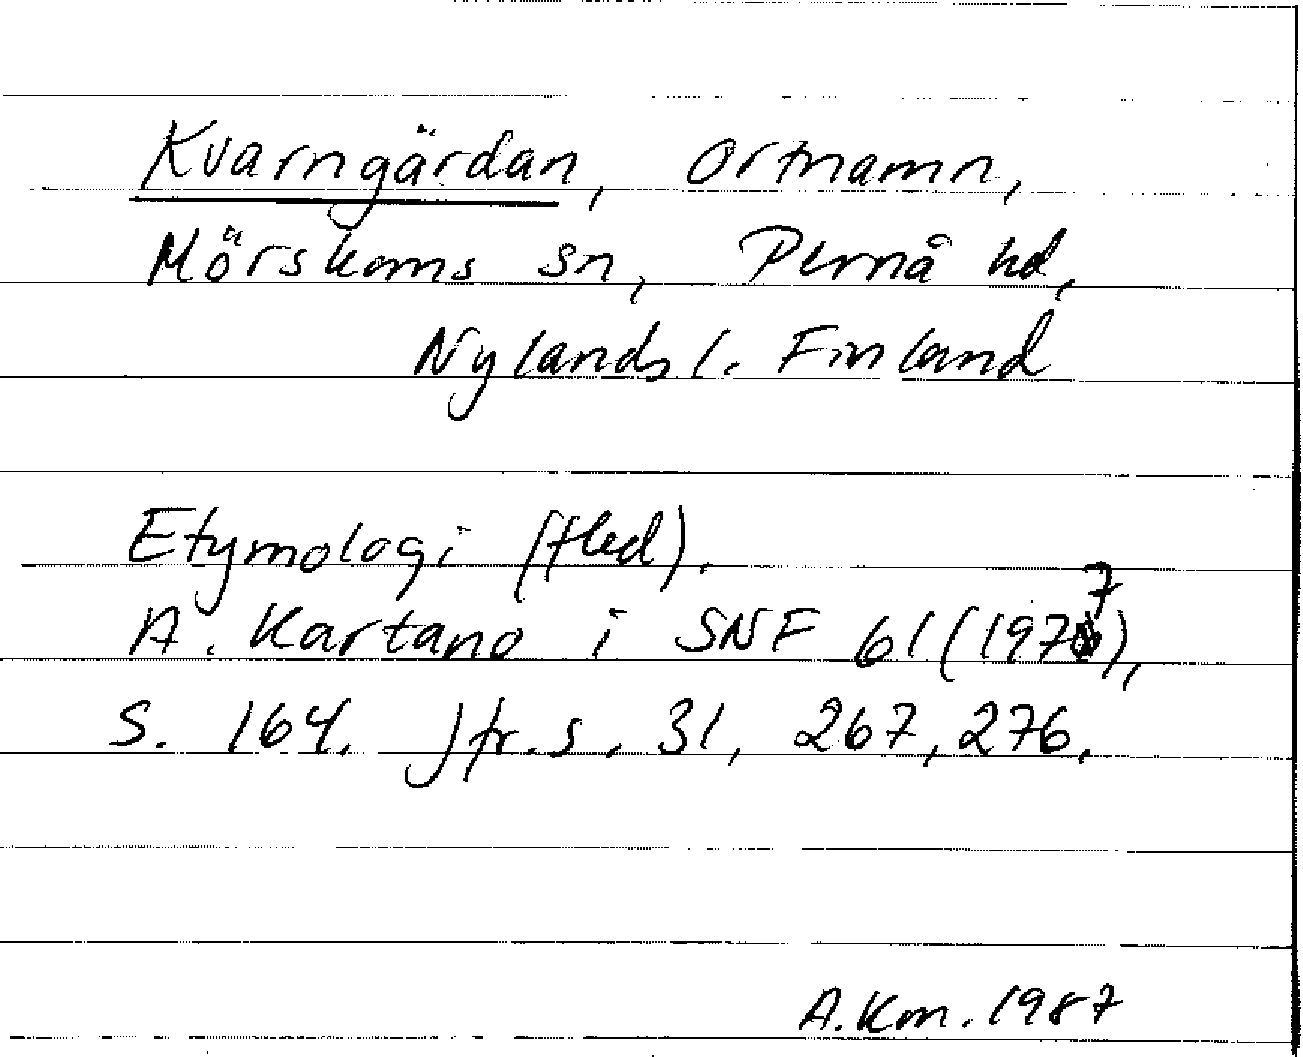 Kvarngärdan, Ortnamn,
Mörskoms sn, Pernå hd,
Nylands l. Finland
Etymologi (fled).
A. Kartano i SNF 61 (1977),
S. 164. Jfr. s. 31, 267, 276.
A.Km. 1987